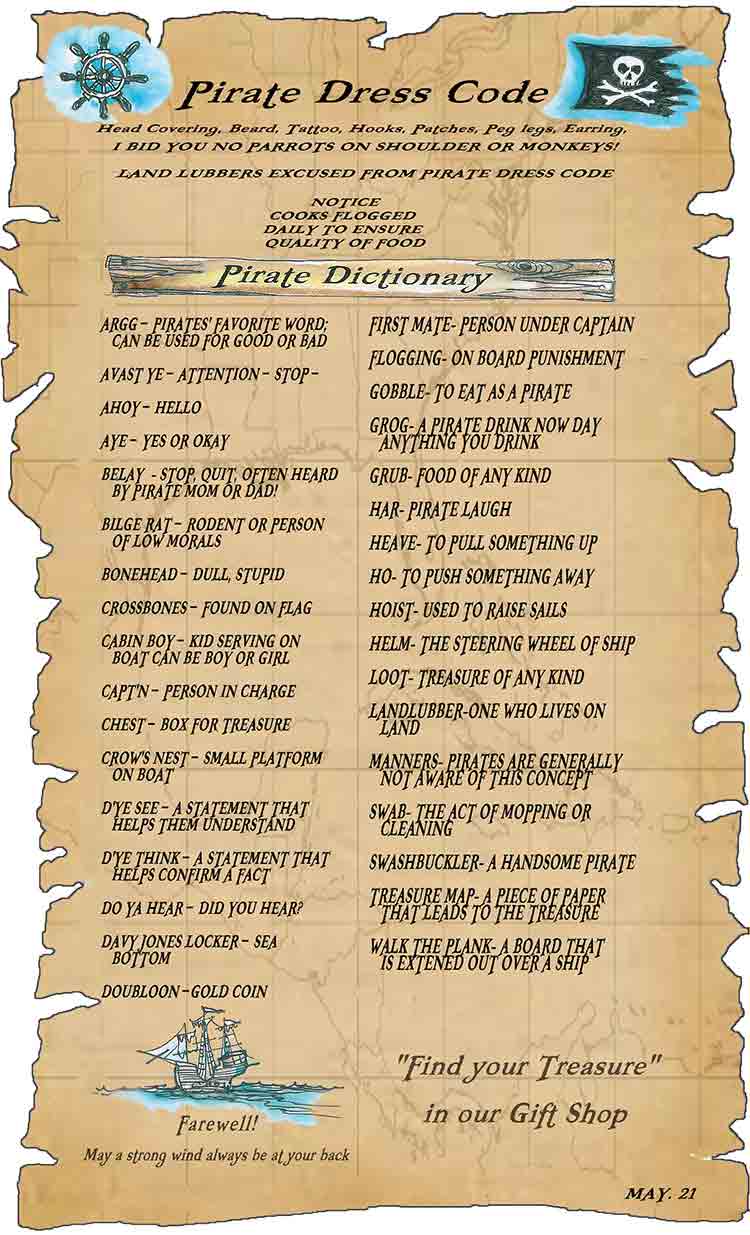 Pirate Dress Code
Head Covering, Beard, Tattoo, Hooks, Patches, Peg legs, Earring,
I BID YOU NO PARROTS ON SHOULDER OR MONKEYS!
LAND LUBBERS EXCUSED FROM PIRATE DRESS CODE
NOTICE
COOKS FLOGGED
DAILY TO ENSURE
QUALITY OF FOOD
Pirate Dictionary
ARGG – PIRATES' FAVORITE WORD;
CAN BE USED FOR GOOD OR BAD
AVAST YE – ATTENTION – STOP –
AHOY – HELLO
AYE – YES OR OKAY
BELAY - STOP, QUIT, OFTEN HEARD
BY PIRATE MOM OR DAD!
BILGE RAT – RODENT OR PERSON
OF LOW MORALS
BONEHEAD – DULL, STUPID
CROSSBONES – FOUND ON FLAG
CABIN BOY – KID SERVING ON
BOAT CAN BE BOY OR GIRL
CAPT'N – PERSON IN CHARGE
CHEST – BOX FOR TREASURE
CROW'S NEST – SMALL PLATFORM
ON BOAT
D'YE SEE – A STATEMENT THAT
HELPS THEM UNDERSTAND
D'YE THINK – A STATEMENT THAT
HELPS CONFIRM A FACT
DO YA HEAR – DID YOU HEAR?
DAVY JONES LOCKER – SEA
BOTTOM
DOUBLOON – GOLD COIN
FIRST MATE- PERSON UNDER CAPTAIN
FLOGGING- ON BOARD PUNISHMENT
GOBBLE- TO EAT AS A PIRATE
GROG- A PIRATE DRINK NOW DAY
ANYTHING YOU DRINK
GRUB- FOOD OF ANY KIND
HAR- PIRATE LAUGH
HEAVE- TO PULL SOMETHING UP
HO- TO PUSH SOMETHING AWAY
HOIST- USED TO RAISE SAILS
HELM- THE STEERING WHEEL OF SHIP
LOOT- TREASURE OF ANY KIND
LANDLUBBER-ONE WHO LIVES ON
LAND
MANNERS- PIRATES ARE GENERALLY
NOT AWARE OF THIS CONCEPT
SWAB- THE ACT OF MOPPING OR
CLEANING
SWASHBUCKLER- A HANDSOME PIRATE
TREASURE MAP- A PIECE OF PAPER
THAT LEADS TO THE TREASURE
WALK THE PLANK- A BOARD THAT
IS EXTENED OUT OVER A SHIP
Farewell!
May a strong wind always be at your back
"Find your Treasure"
in our Gift Shop
MAY. 21